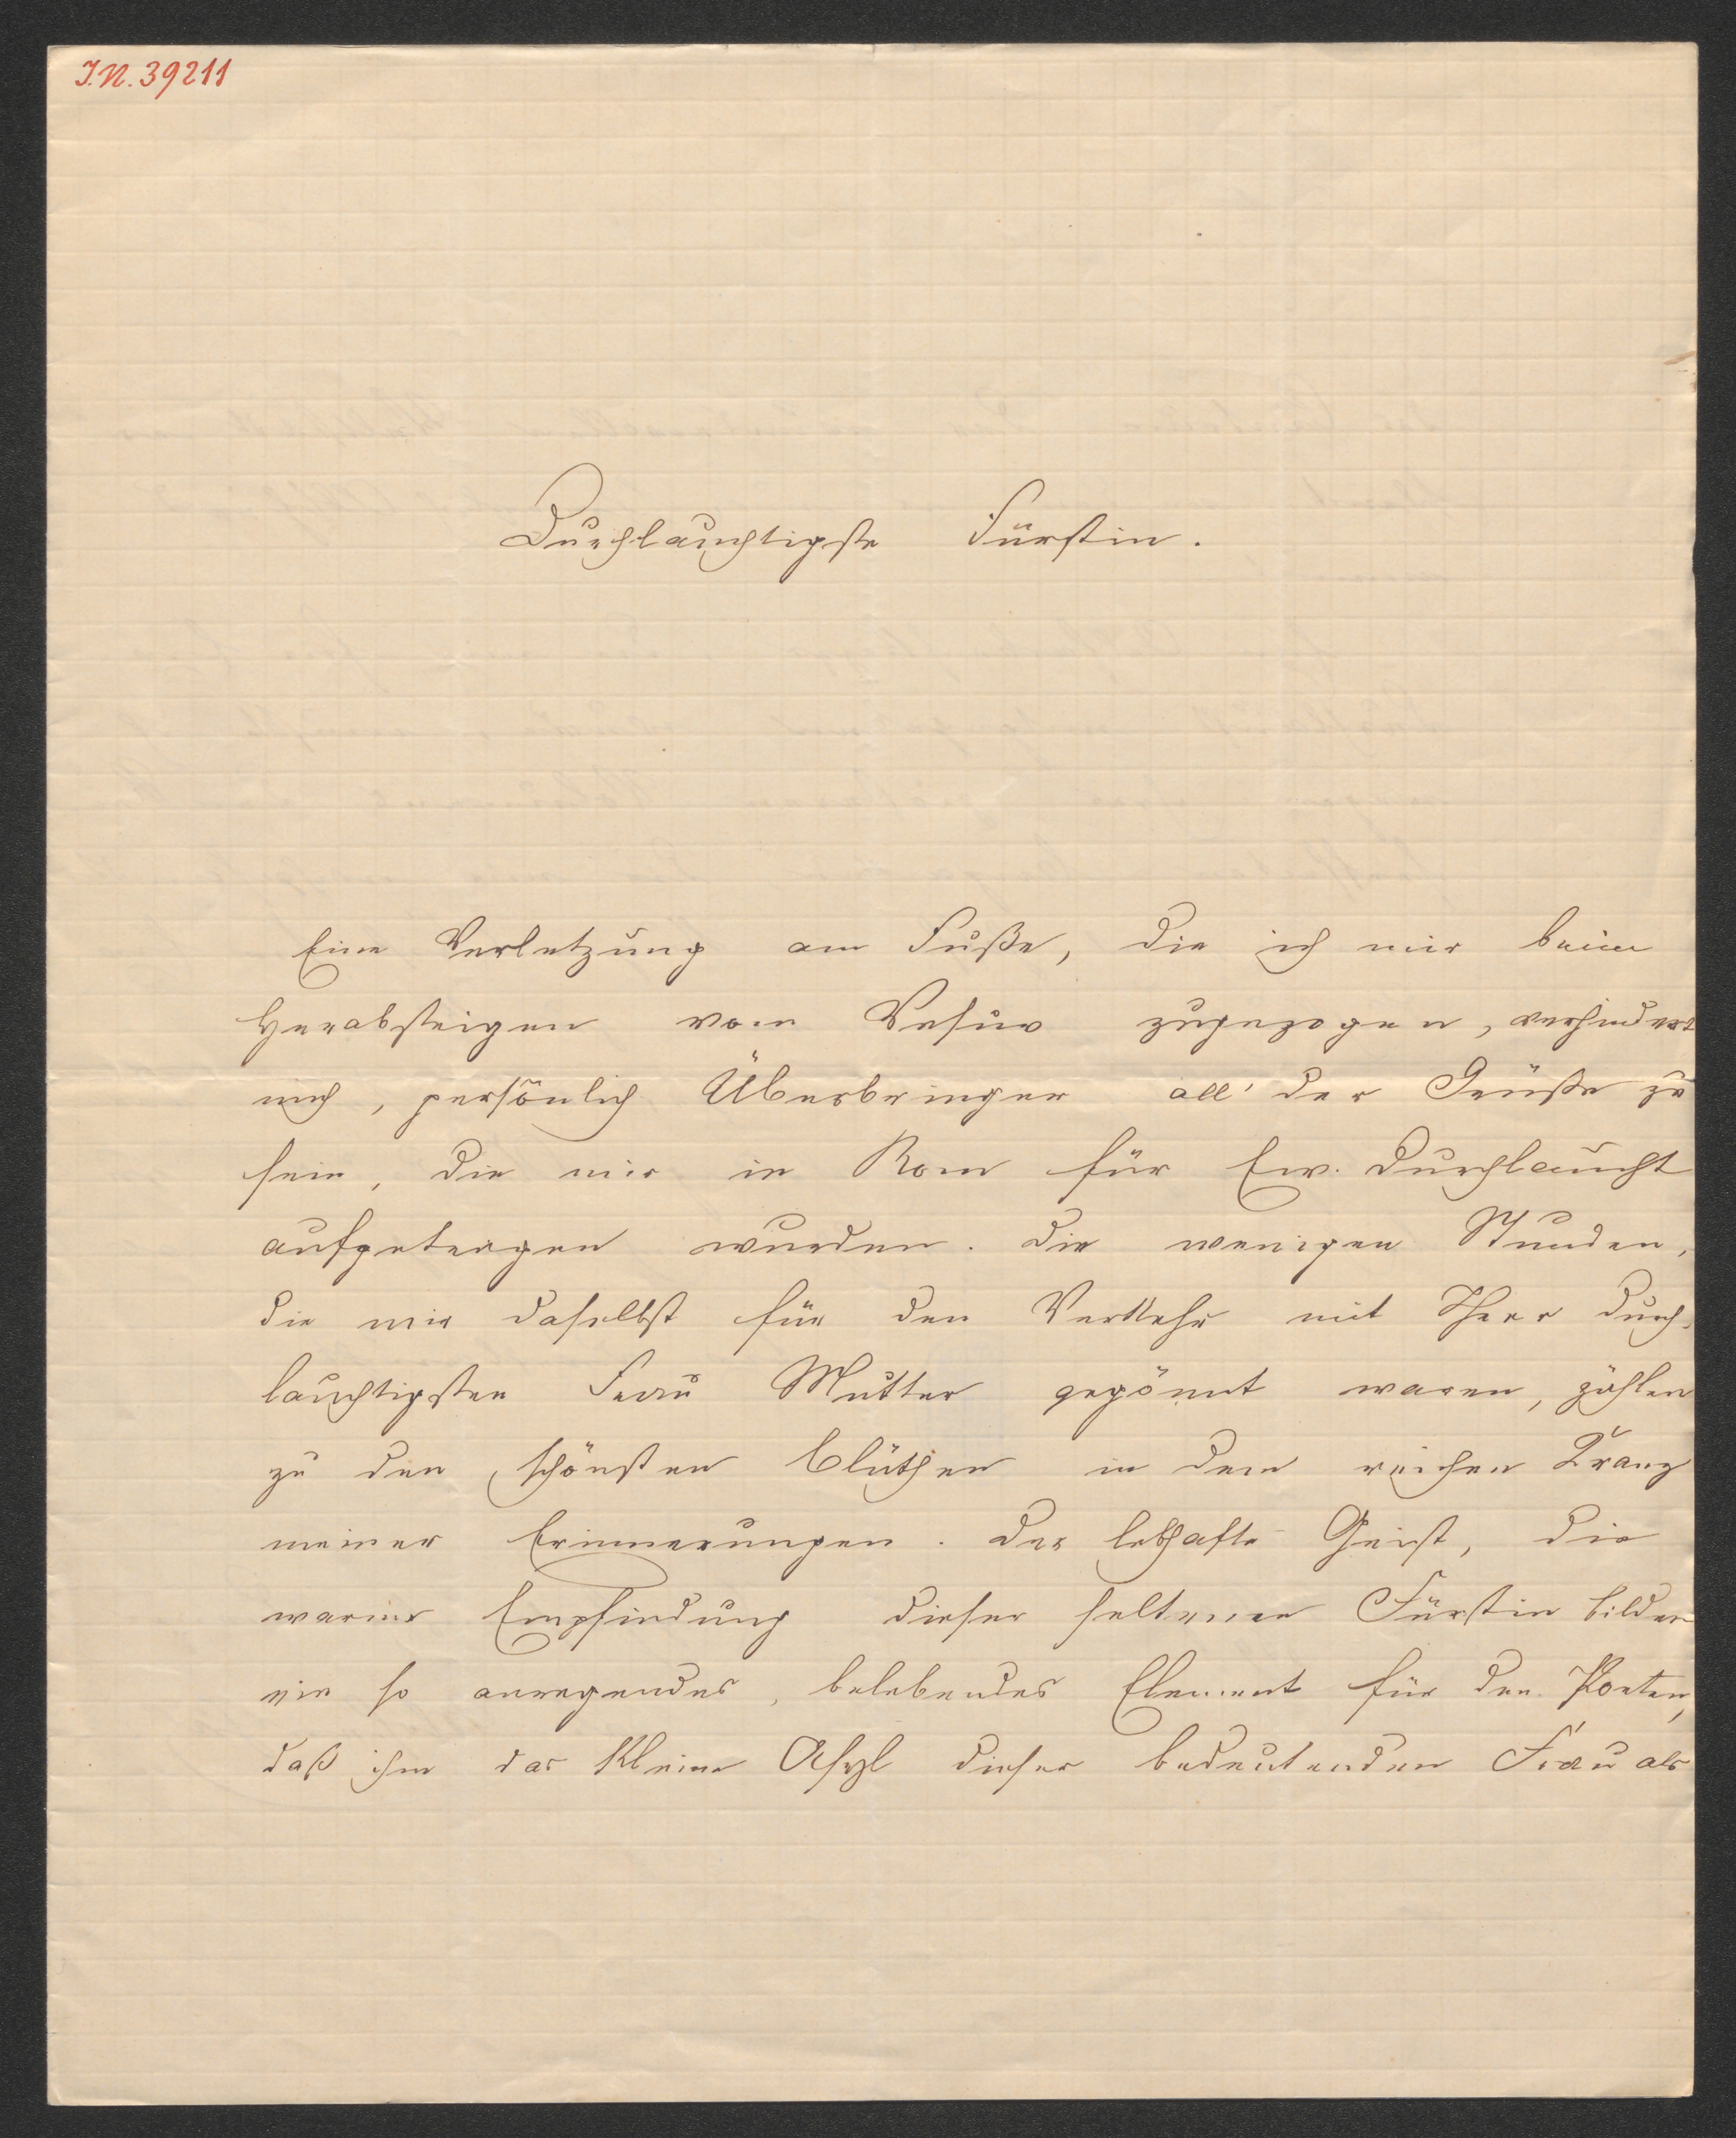 I.N. 39211
Durchlauchtigste Fürstin.
Eine Verletzung am Fuße, die ich mir beim
Herabsteigen vom Vesuv zugezogen, verhindert
mich, persönlich Überbringer all' der Grüße zu
sein, die mir in Rom für Ew. Durchlaucht
aufgetragen wurden. Die wenigen Stunden,
die mir daselbst für den Verkehr mit Ihrer durch-
lauchtigsten Frau Mutter gegönnt waren, zählen
zu den schönsten Blüthen in dem reichen Kranz
meiner Erinnerungen. Der lebhafte Geist, die
warme Empfindung dieser seltenen Fürstin bilden
ein so anregendes, belebendes Element für den Poeten,
daß ihm das kleine Asyl dieser bedeutenden Frau als